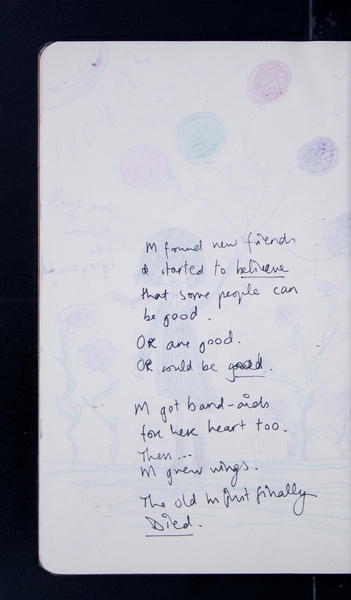 M found new friends
& started to believe
that some people can
be good.
OR are good.
OR could be good.
M got band-aids
for her heart too.
Then...
M grew wings.
The old M just finally
Died.